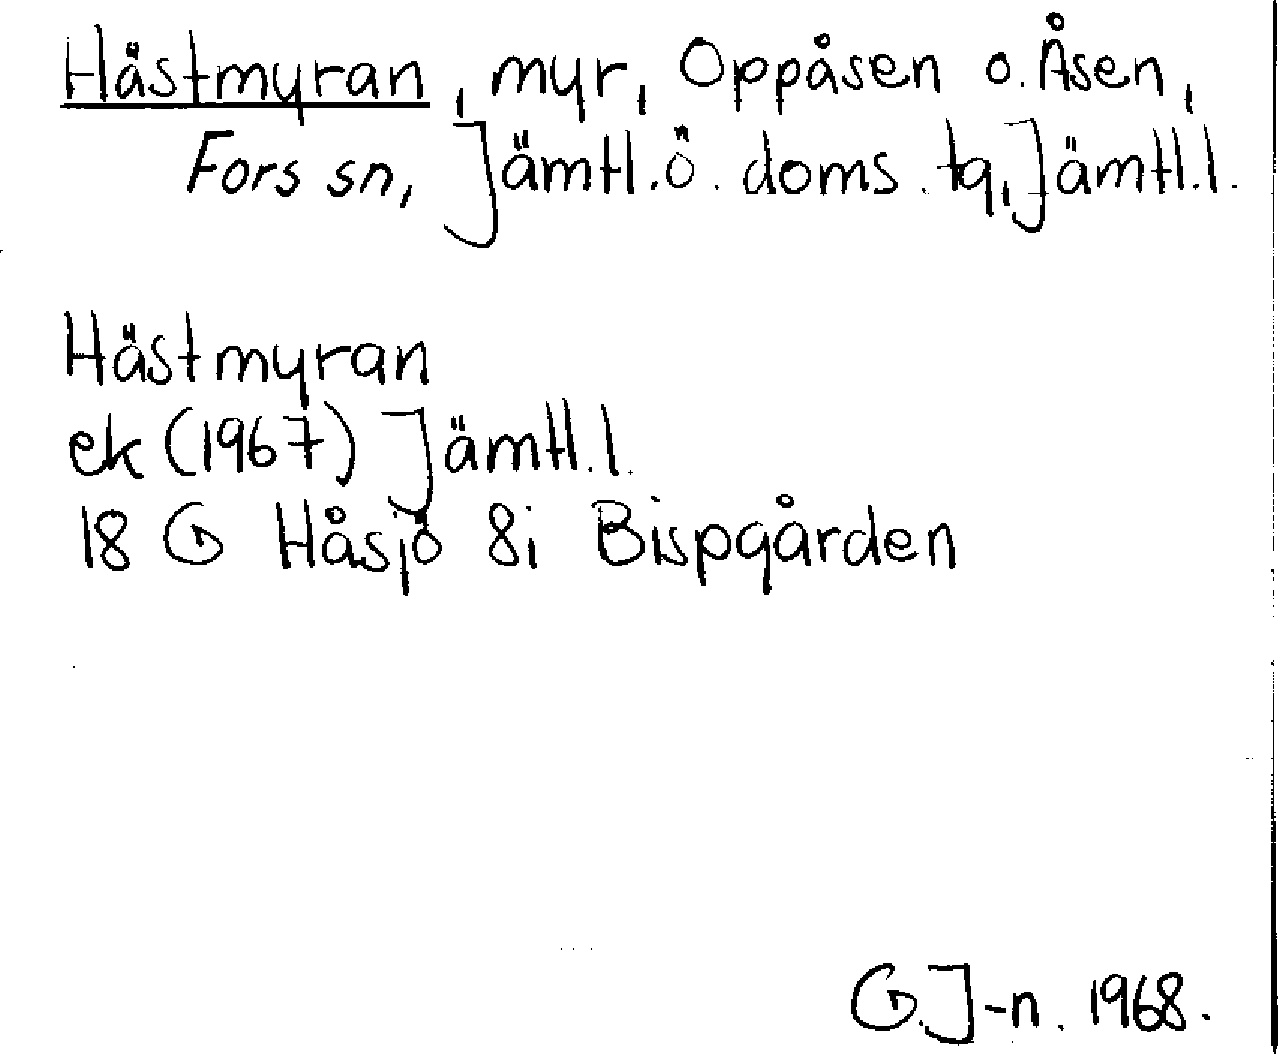 Hästmyran, myr, Oppåsen o. Åsen,
Fors sn, Jämtl. ö. doms. tg, Jämtl. l.
Hästmyran
ek (1967) Jämtl. l.
18 G Håsjö 8i Bispgården
G. J-n. 1968.